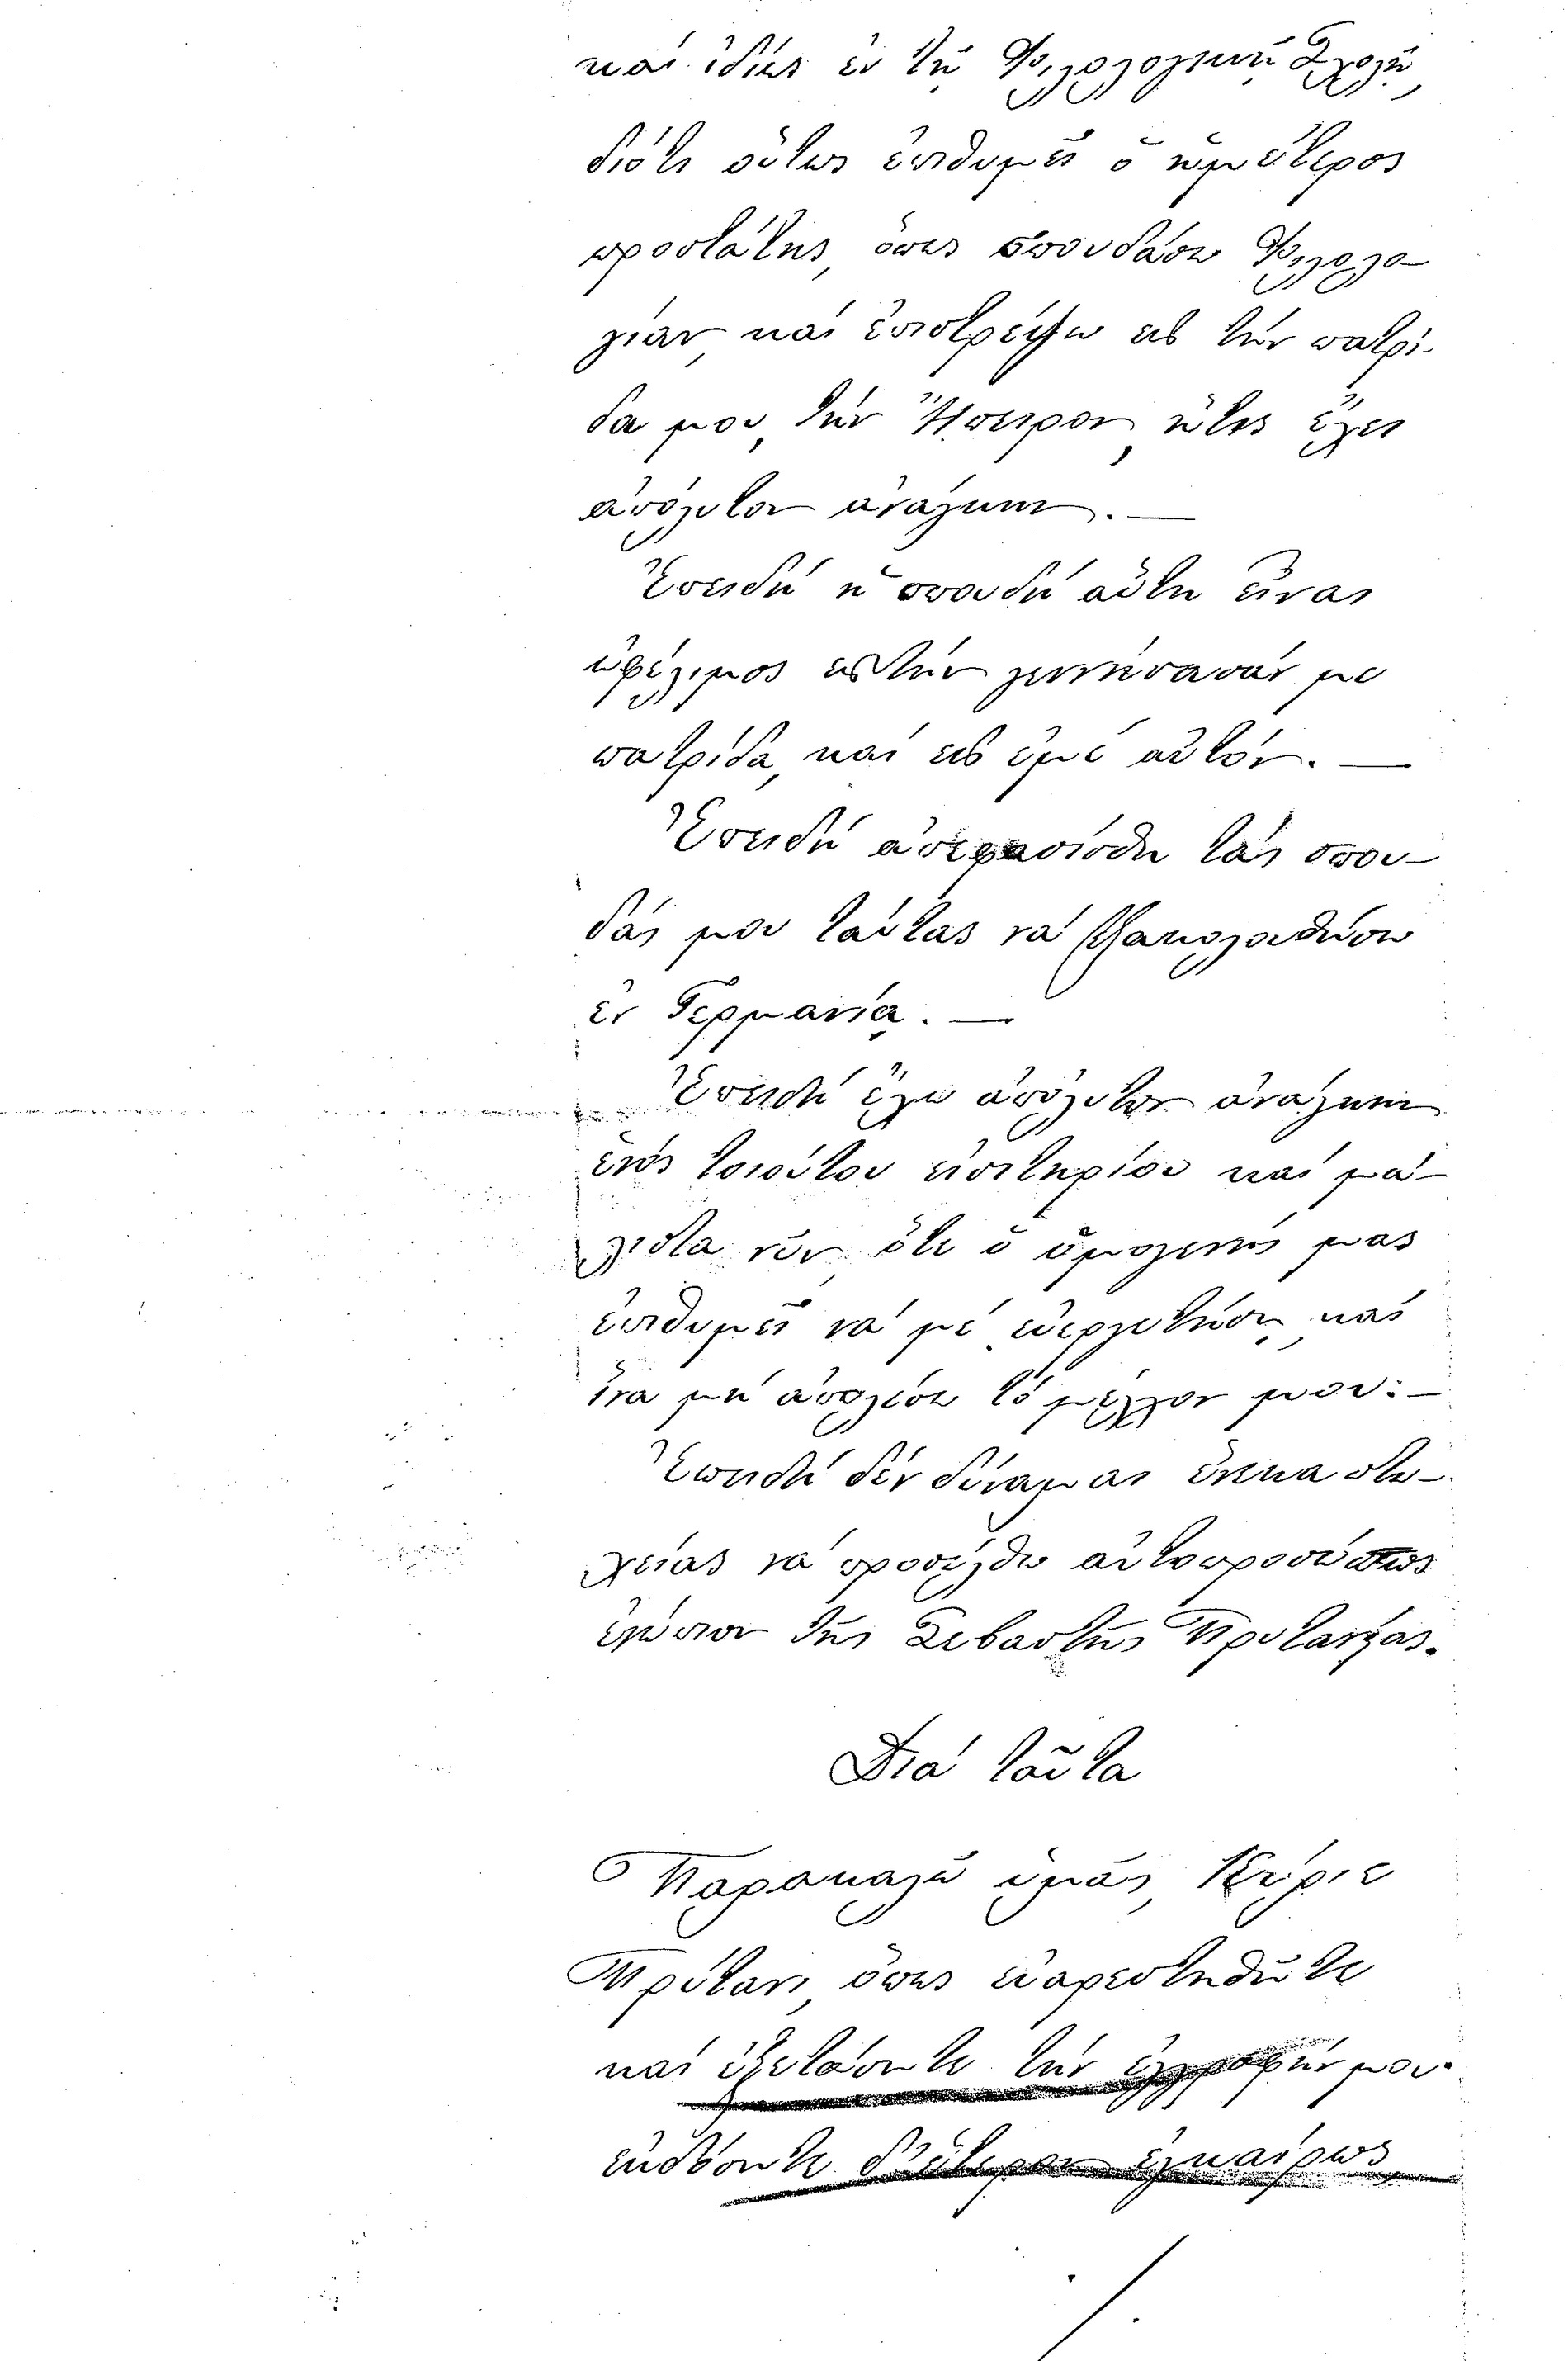 καί ἰδίως ἐν τῇ Φιλολογικῇ Σχολῇ,
διότι οὕτως ἐπιθυμεῖ ὁ ἡμέτερος
προστάτης, ὅπως σπουδάσω Φιλολο-
γίαν, καί ἐπιστρέψω εἰς τήν πατρί-
δα μου, τήν Ἤπειρον, ἥτις ἔχει
ἀπόλυτον ἀνάγκην. —
Ἐπειδή ἡ σπουδή αὕτη εἶναι
ὠφέλιμος εἰς τήν γεννήσασάν με
πατρίδα, καί εἰς ἐμέ αὐτόν. —
Ἐπειδή ἀπεφασίσθη τάς σπου-
δάς μου ταύτας νά ἐξακολουθήσω
ἐν Γερμανίᾳ. —
Ἐπειδή ἔχω ἀπόλυτον ἀνάγκην
ἑνός τοιούτου εἰσιτηρίου καί μά-
λιστα νῦν, ὅτι ὁ ὁμογενής μας
ἐπιθυμεῖ νά μέ εὐεργετήσῃ, καί
ἵνα μή ἀπολέσω τό μέλλον μου: —
Ἐπειδή δέν δύναμαι ἕνεκα πτω-
χείας νά προσέλθω αὐτοπροσώπως
ἐνώπιον τῆς Σεβαστῆς Πρυτανείας.
Διά ταῦτα
Παρακαλῶ ὑμᾶς, Κύριε
Πρύτανι, ὅπως εὐαρεστηθῆτε
καί ἐξετάσητε τήν ἐγγραφήν μου·
ἐκδόσητε δ' ἕτερον ἐγκαίρως,